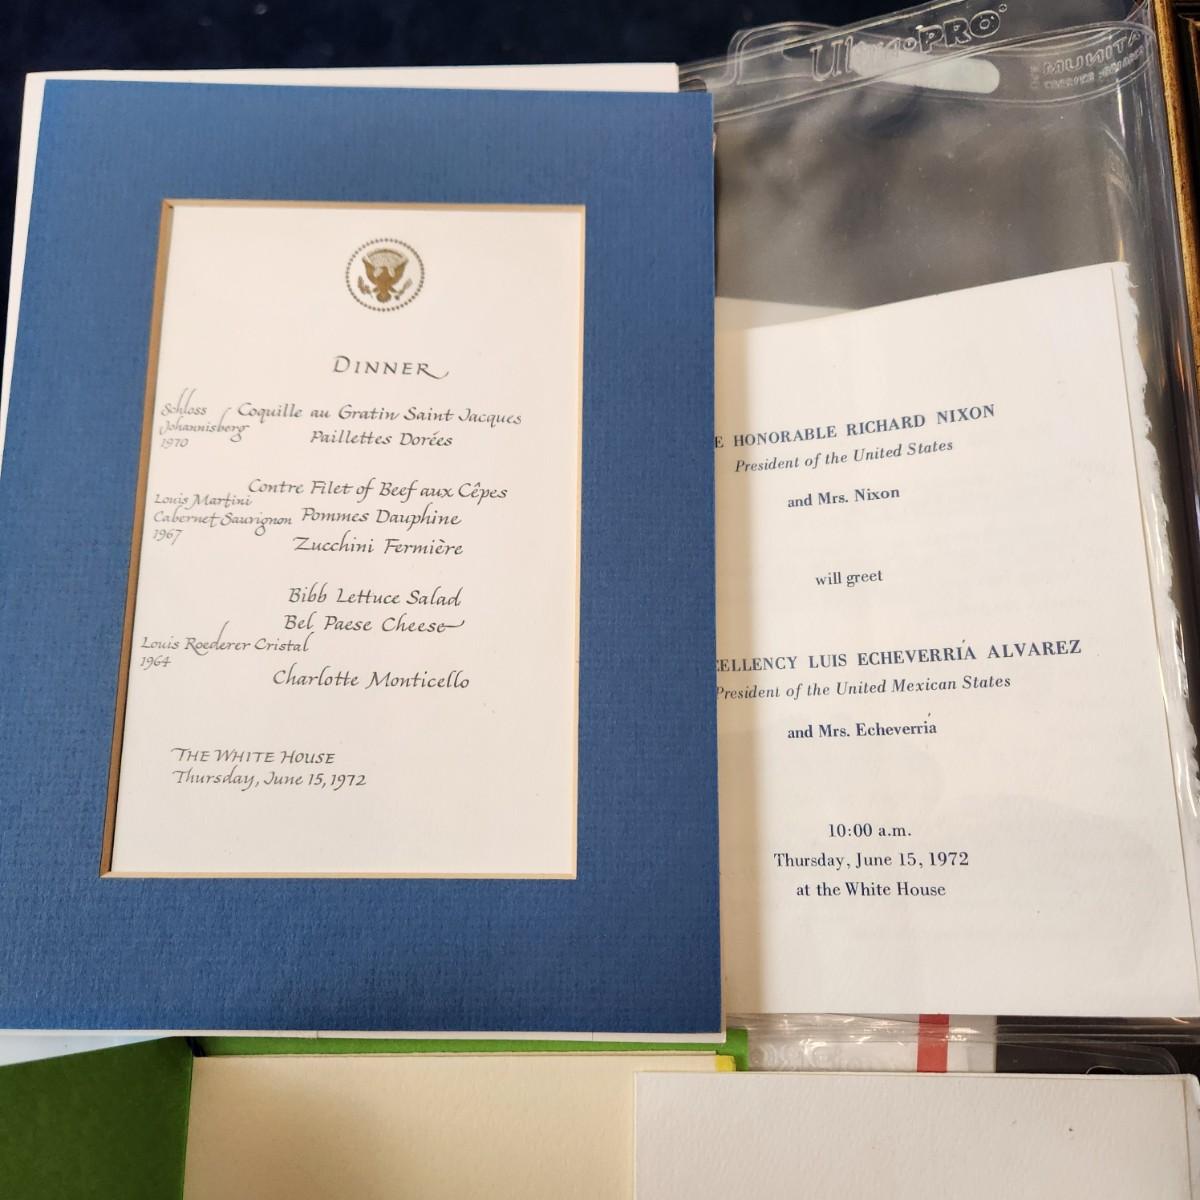 Ultra•PRO
DINNER
Schloss
Johannisberg
1970
Coquille au Gratin Saint Jacques
Paillettes Dorées
Louis Martini
Cabernet Sauvignon
1967
Contre Filet of Beef aux Cêpes
Pommes Dauphine
Zucchini Fermière
Bibb Lettuce Salad
Bel Paese Cheese
Louis Roederer Cristal
1964
Charlotte Monticello
THE WHITE HOUSE
Thursday, June 15, 1972
E HONORABLE RICHARD NIXON
President of the United States
and Mrs. Nixon
will greet
ELLENCY LUIS ECHEVERRÍA ALVAREZ
President of the United Mexican States
and Mrs. Echeverría
10:00 a.m.
Thursday, June 15, 1972
at the White House